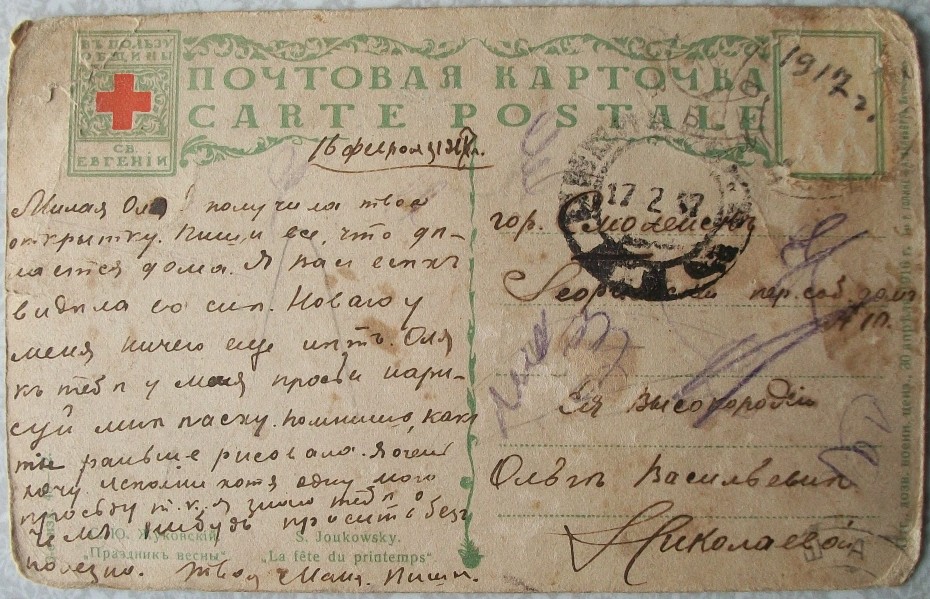 ВЪ ПОЛЬЗУ
ОБЩИНЫ
СВ.
ЕВГЕНІИ
ПОЧТОВАЯ КАРТОЧКА
CARTE POSTALE
1917 г.
16 февраля
Милая Оля! получила твою
открытку. Пиши все, что дѣ-
лается дома. Я васъ всѣхъ
видѣла во снѣ. Новаго у
меня ничего еще нѣтъ. Оля
къ тебѣ у меня просьба нари-
суй мнѣ пасху. помнишь, какъ
ты раньше рисовала. Я очень
хочу. Исполни хотя одну мою
просьбу т. к. я знаю тебѣ о
чемъ нибудь просить без
полезно. Твоя Маня. Пиши.
С. Ю. Жуковскій.
„Праздникъ весны“.
S. Joukowsky.
„La fête du printemps“
17 2 17
гор. Смоленскъ
Георгіевскій пер. соб. домъ
Ея Высокородію
Ольгѣ Васильевнѣ
Николаевой